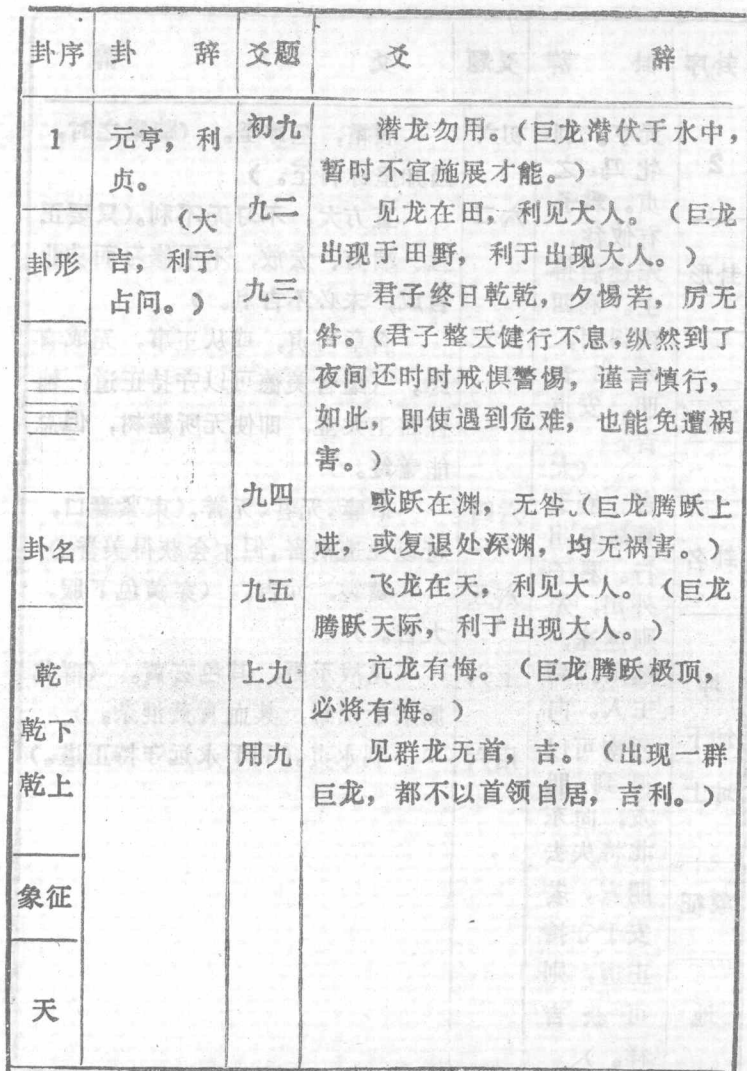 卦序 卦 辞 爻题 爻 辞
1
卦形
卦名
乾
乾下
乾上
象征
天
元亨，利
贞。
（大
吉，利于
占问。）
初九
潜龙勿用。（巨龙潜伏于水中，
暂时不宜施展才能。）
九二
见龙在田，利见大人。（巨龙
出现于田野，利于出现大人。）
九三
君子终日乾乾，夕惕若，厉无
咎。（君子整天健行不息，纵然到了
夜间还时时戒惧警惕，谨言慎行，
如此，即使遇到危难，也能免遭祸
害。）
九四
或跃在渊，无咎。（巨龙腾跃上
进，或复退处深渊，均无祸害。）
九五
飞龙在天，利见大人。（巨龙
腾跃天际，利于出现大人。）
上九
亢龙有悔。（巨龙腾跃极顶，
必将有悔。）
用九
见群龙无首，吉。（出现一群
巨龙，都不以首领自居，吉利。）